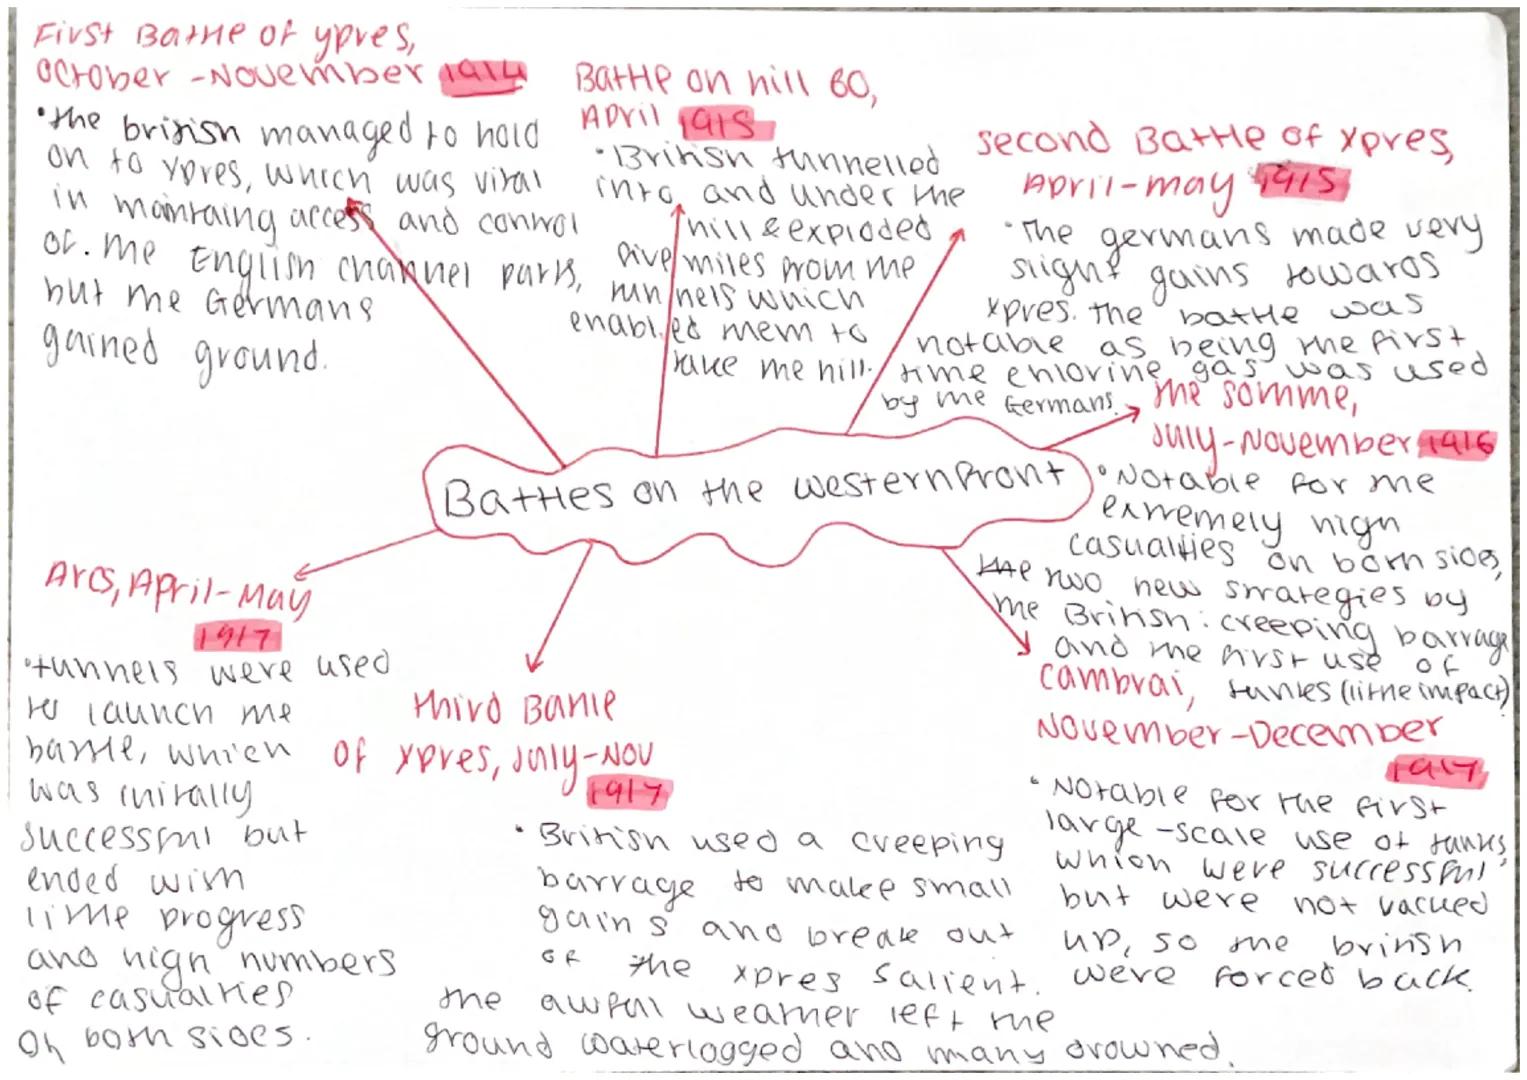 First Battle of ypres,
October - November 1914
• the british managed to hold
on to Ypres, which was vital
in maintaing access and control
of. the English channel parts,
but the Germans
gained ground.
Battle on hill 60,
April 1915
• British tunnelled
into and under the
hill & exploded
five miles from the
tunnels which
enabled them to
take the hill.
second Battle of Ypres,
April-may 1915
• The germans made very
slight gains towards
Ypres. the battle was
notable as being the first
time chlorine gas was used
by the Germans.
the somme,
July-November 1916
• Notable for the
extremely high
casualties on both sides,
the two new strategies by
the British: creeping barrage
and the first use of
tanks (little impact)
Battles on the western front
Arcs, April-May
1917
• tunnels were used
to launch the
battle, which
was initally
successful but
ended with
little progress
and high numbers
of casualties
on both sides.
third Battle
of Ypres, July-Nov
1917
• British used a creeping
barrage to make small
gains and break out
of the Ypres Salient.
the awful weather left the
ground waterlogged and many drowned.
Cambrai,
November-December
1917
• Notable for the first
large-scale use of tanks,
which were successful
but were not vacued
up, so the british
were forced back.